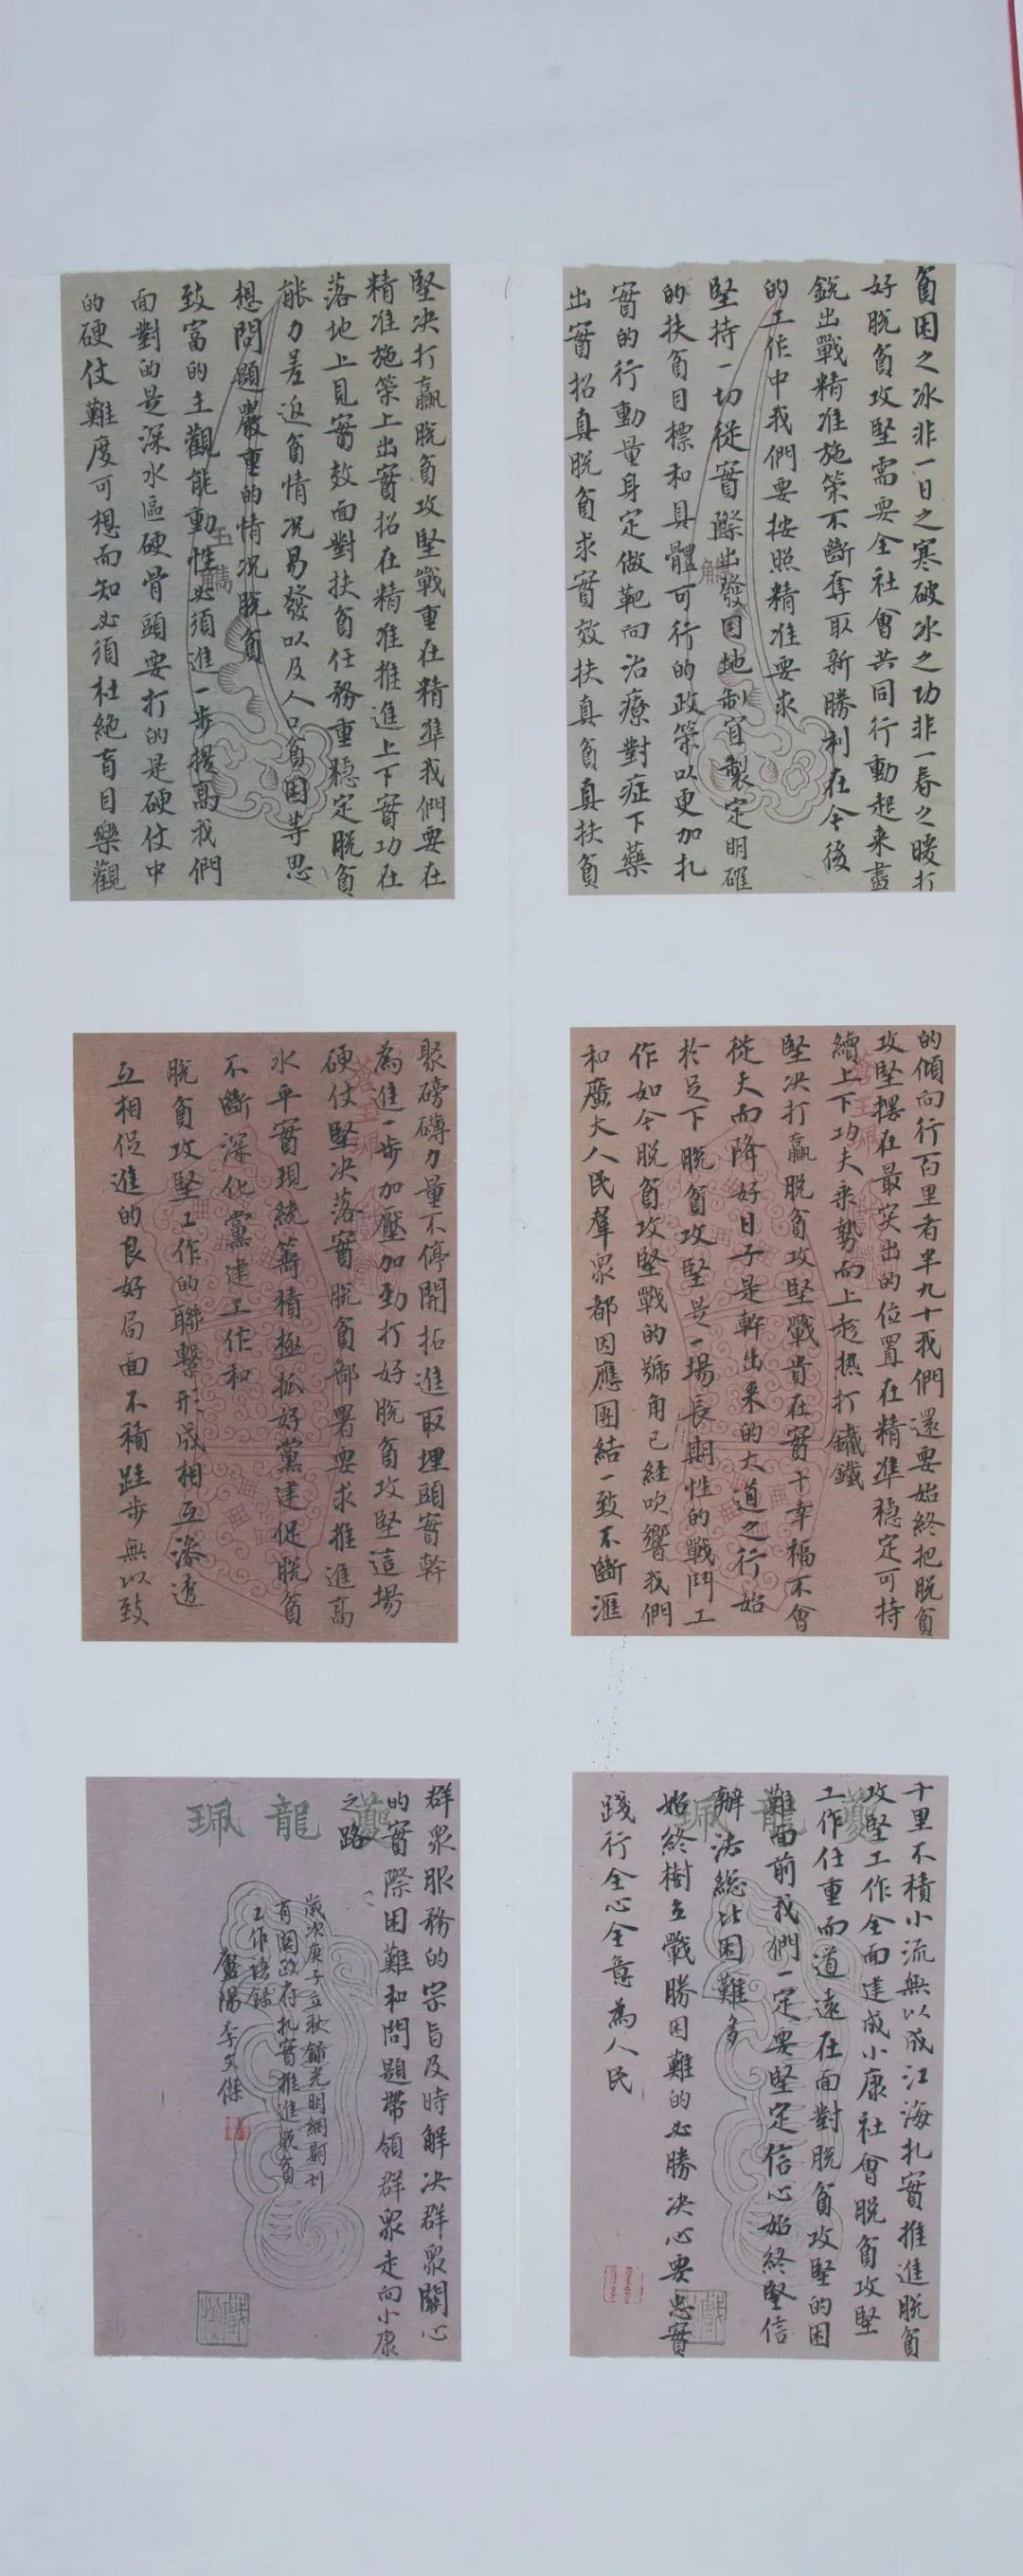 貧困之冰非一日之寒破冰之功非一春之暖打
好脱貧攻堅需要全社會共同行動起来盡
銳出戰精准施策不斷奪取新勝利在今後
的工作中我們要按照精准要求
堅持一切從實際出發因地制宜製定明確
的扶貧目標和具體可行的政策以更加扎
實的行動量身定做靶向治療對症下藥
出實招真脱貧求實效扶真貧真扶貧
堅决打贏脱貧攻堅戰重在精準我們要在
精准施策上出實招在精准推進上下實功在
落地上見實效面對扶貧任務重穩定脱貧
能力差返貧情况易發以及人口貧困等思
想問題嚴重的情况脱貧
致富的主觀能動性必須進一步提高我們
面對的是深水區硬骨頭要打的是硬仗中
的硬仗難度可想而知必須杜絶盲目樂觀
的傾向行百里者半九十我們還要始終把脱貧
攻堅擺在最突出的位置在精準穩定可持
續上下功夫乘勢而上趁热打鐵鐵
堅决打贏脱貧攻堅戰貴在實干幸福不會
從天而降好日子是幹出来的大道之行始
於足下脱貧攻堅是一場長期性的戰鬥工
作如今脱貧攻堅戰的號角已經吹響我們
和廣大人民羣眾都因應團結一致不斷滙
聚磅礴力量不停開拓進取埋頭實幹
為進一步加壓加勁打好脱貧攻堅這場
硬仗堅决落實脱貧部署要求推進高
水平實現統籌積極抓好黨建促脱貧
不斷深化黨建工作和
脱貧攻堅工作的聯繫形成相互滲透
互相促進的良好局面不積跬步無以致
千里不積小流無以成江海扎實推進脱貧
攻堅工作全面建成小康社會脱貧攻堅
工作任重而道遠在面對脱貧攻堅的困
難面前我們一定要堅定信心始終堅信
辦法總比困難多
始終樹立戰勝困難的必勝决心要忠實
踐行全心全意為人民
群眾服務的宗旨及時解决群眾關心
的實際困難和問題帶領群眾走向小康
之路
歲次庚子立秋録光明網期刊
有関政府扎實推進脱貧
工作語録
盧陽李文傑
夔龍珮
夔龍珮